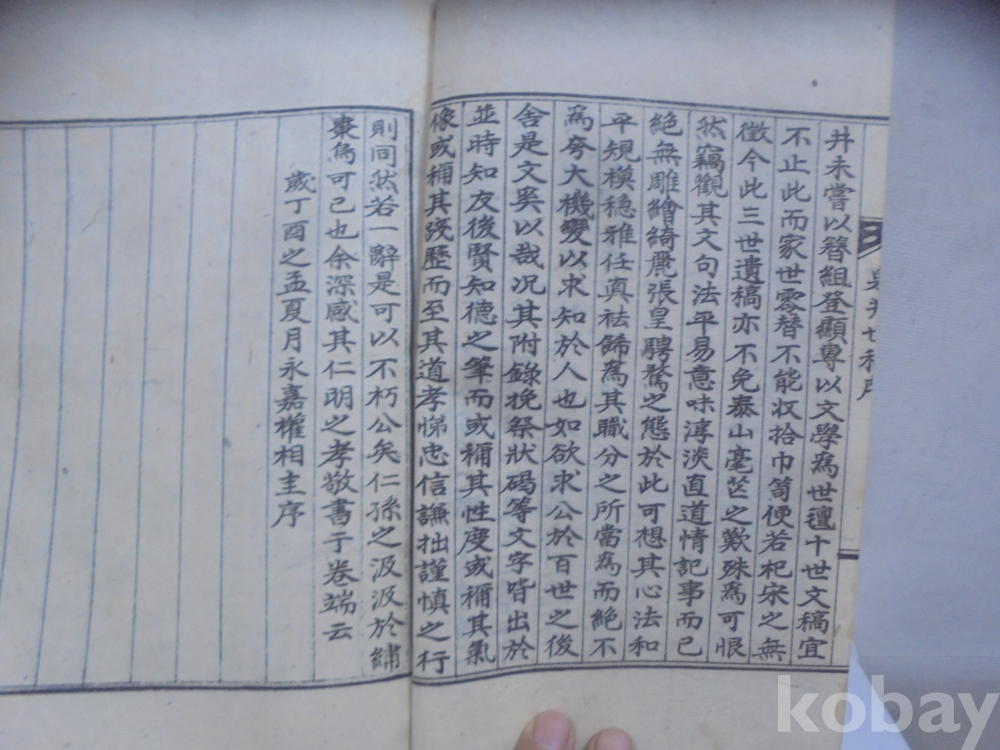 井未嘗以簪組登顯專以文學爲世氊十世文稿宜
不止此而家世零替不能收拾巾笥便若杞宋之無
徵今此三世遺稿亦不免泰山毫芒之歎殊爲可恨
然竊觀其文句法平易意味淳淡直道情記事而已
絶無雕繪綺麗張皇騁騖之態於此可想其心法和
平規模穏雅任真祛餙爲其職分之所當爲而絶不
爲夸大機變以求知於人也如欲求公於百世之後
舎是文奚以哉况其附錄挽祭狀碣等文字皆出於
並時知友後賢知德之筆而或稱其性度或稱其氣
像或稱其踐歷而至其道孝悌忠信謙拙謹慎之行
則同然若一辭是可以不朽公矣仁孫之汲汲於繡
棗爲可已也余深感其仁明之孝敬書于卷端云
歲丁酉之孟夏月永嘉權相圭序
世稿序
kobay